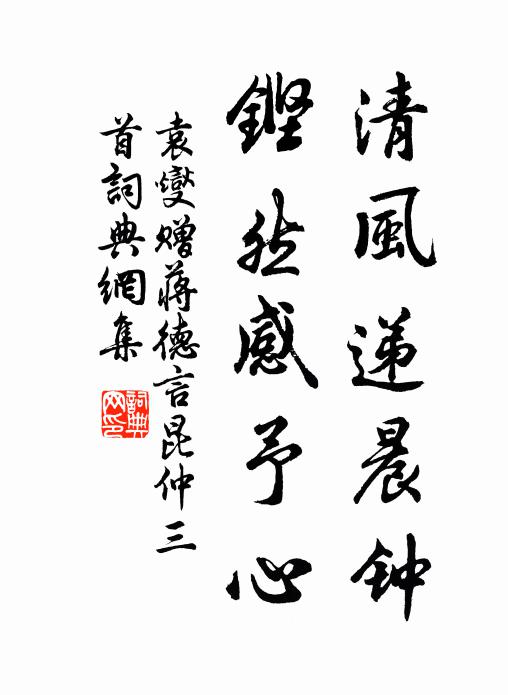 清風递晨钟
鏗然感予心
袁燮赠蔣德言昆仲三
首詞典網集
詞典
网印